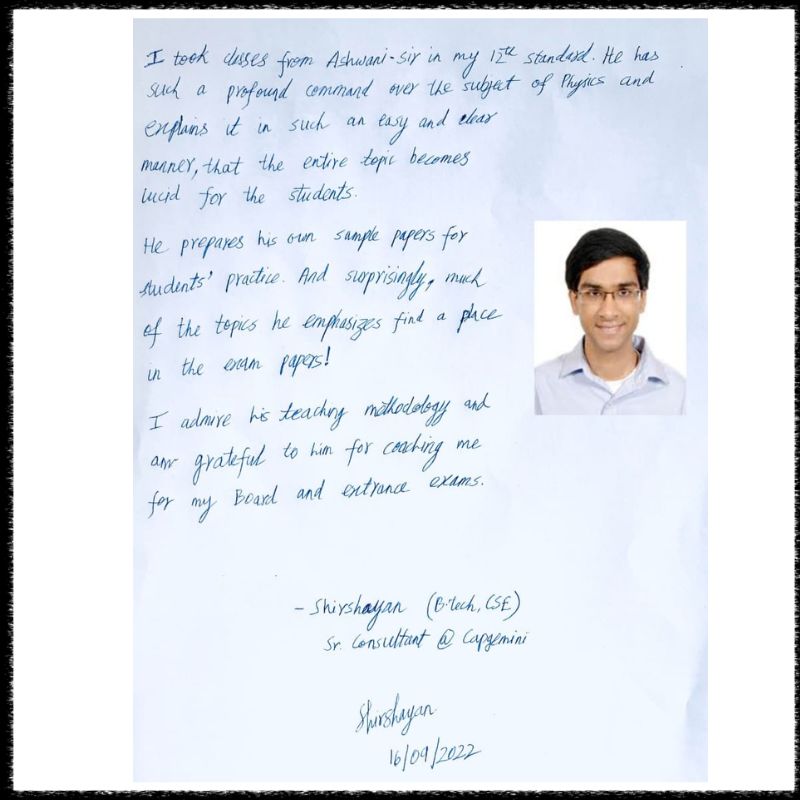 I took classes from Ashwani-sir in my 12th standard. He has
such a profound command over the subject of Physics and
explains it in such an easy and clear
manner, that the entire topic becomes
lucid for the students.
He prepares his own sample papers for
students' practice. And surprisingly, much
of the topics he emphasizes find a place
in the exam papers!
I admire his teaching methodology and
am grateful to him for coaching me
for my Board and entrance exams.
- Shirshayan (B.Tech, CSE)
Sr. Consultant @ Capgemini
Shirshayan
16/09/2022